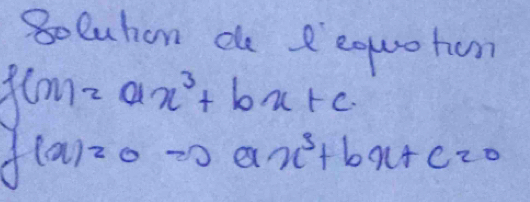 Solution de l'equation
f(x) = ax³ + bx + c.
f(x) = 0 => ax³ + bx + c = 0